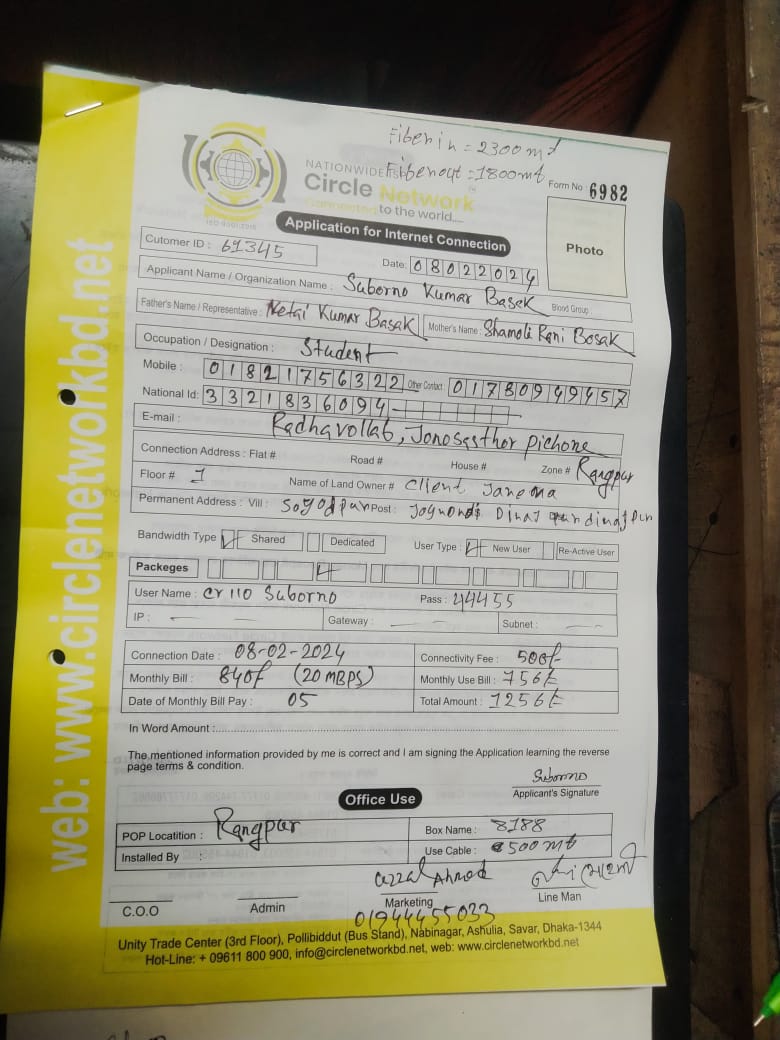 Fiber in = 2300 mt
Fiber out = 1800mt
NATIONWIDE
Circle Network
Connected to the world....
ISO 9001:2015
Form No : 6982
Application for Internet Connection
Photo
Cutomer ID : 61345
Date: 08022024
Applicant Name / Organization Name : Suborno Kumar Basak
Blood Group :
Father's Name / Representative : Netai Kumar Basak
Mother's Name : Shamoli Rani Bosak
Occupation / Designation : Student
Mobile : 01821756322 Other Contact : 01780949457
National Id: 3321836094
E-mail : Radhavollab, Jonosasthor pichone
Connection Address : Flat # Road # House # Zone # Rangpur
Floor # 1 Name of Land Owner # Client
Permanent Address : Vill : Post :
Bandwidth Type Shared Dedicated User Type : New User Re-Active User
Packeges
User Name : cr110 Suborno Pass : 44455
IP : Gateway : Subnet :
Connection Date : 08-02-2024 Connectivity Fee : 500/-
Monthly Bill : 840/ (20 MBPS) Monthly Use Bill : 756/
Date of Monthly Bill Pay : 05 Total Amount : 1256/
In Word Amount :
The mentioned information provided by me is correct and I am signing the Application learning the reverse
page terms & condition.
Suborno
Applicant's Signature
Office Use
POP Locatition : Rangpur Box Name : 8188
Installed By : Use Cable : 500 mt
Ahmed
C.O.O Admin Marketing Line Man
01944455033
Unity Trade Center (3rd Floor), Pollibiddut (Bus Stand), Nabinagar, Ashulia, Savar, Dhaka-1344
Hot-Line: + 09611 800 900, info@circlenetworkbd.net, web: www.circlenetworkbd.net
web: www.circlenetworkbd.net